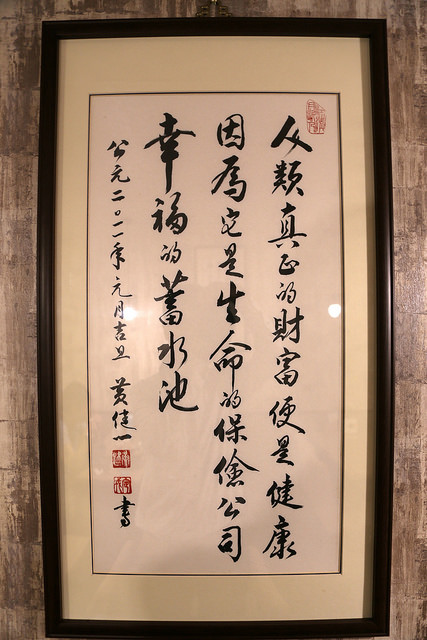 人類真正的財富便是健康
因為它是生命的保險公司
幸福的蓄水池
公元二〇一一年元月吉旦 黃健一
書